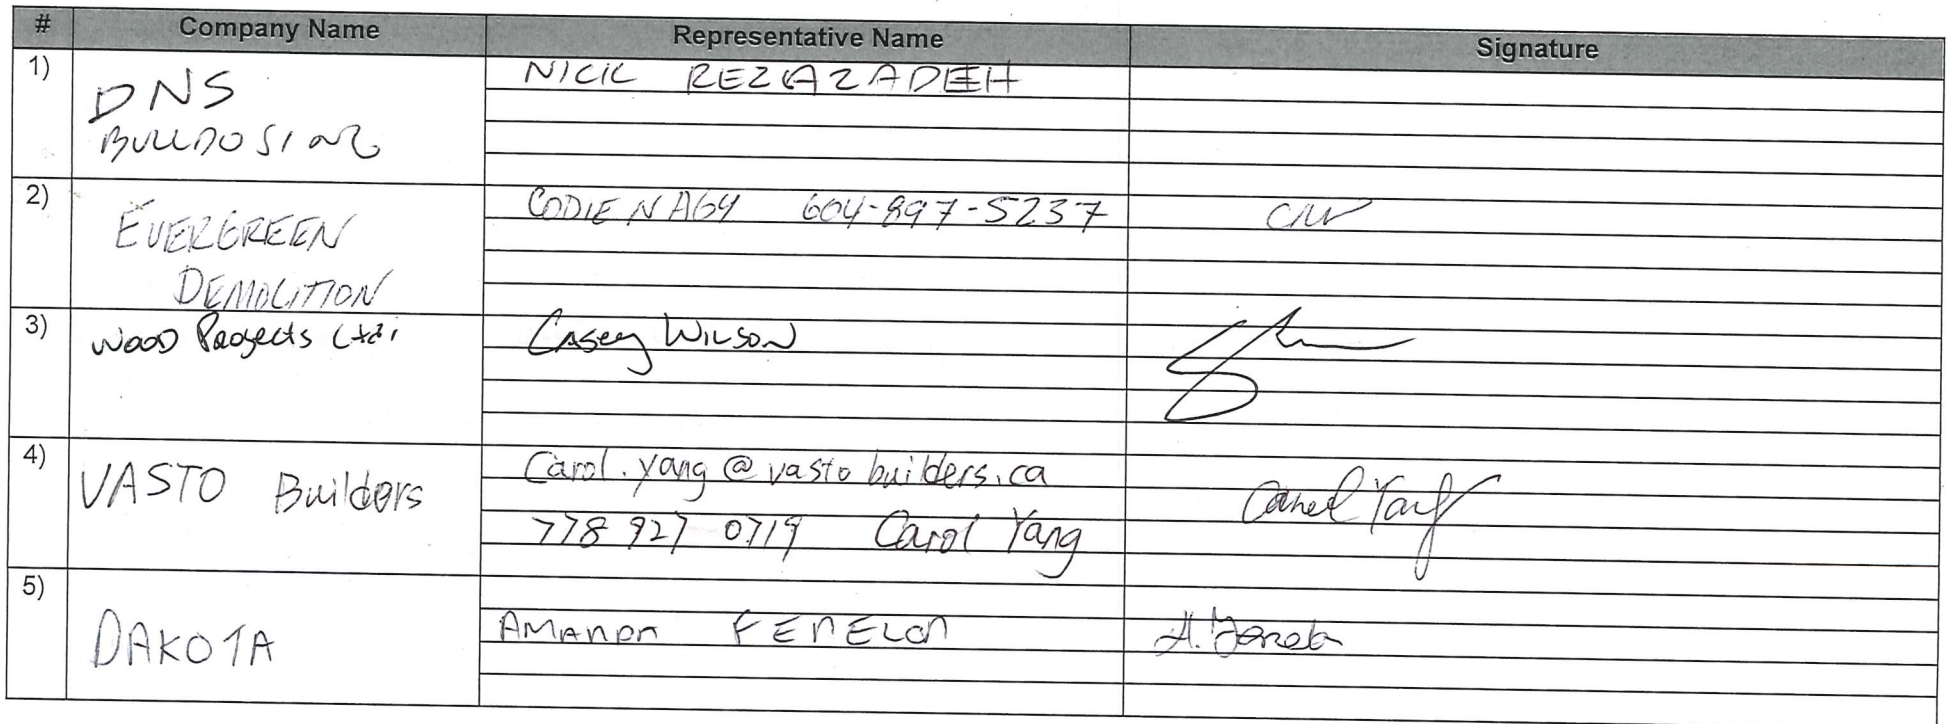 # Company Name Representative Name Signature
1) DNS BULLDOSING NICK REZAZADEH
2) EVERGREEN DEMOLITION CODIE NAGY 604-897-5237
3) WOOD Projects Ltd. Casey WILSON
4) VASTO Builders Carol.yang@vastobuilders.ca
778 927 0719 Carol Yang Carol Yang
5) DAKOTA AMANDA FENELON